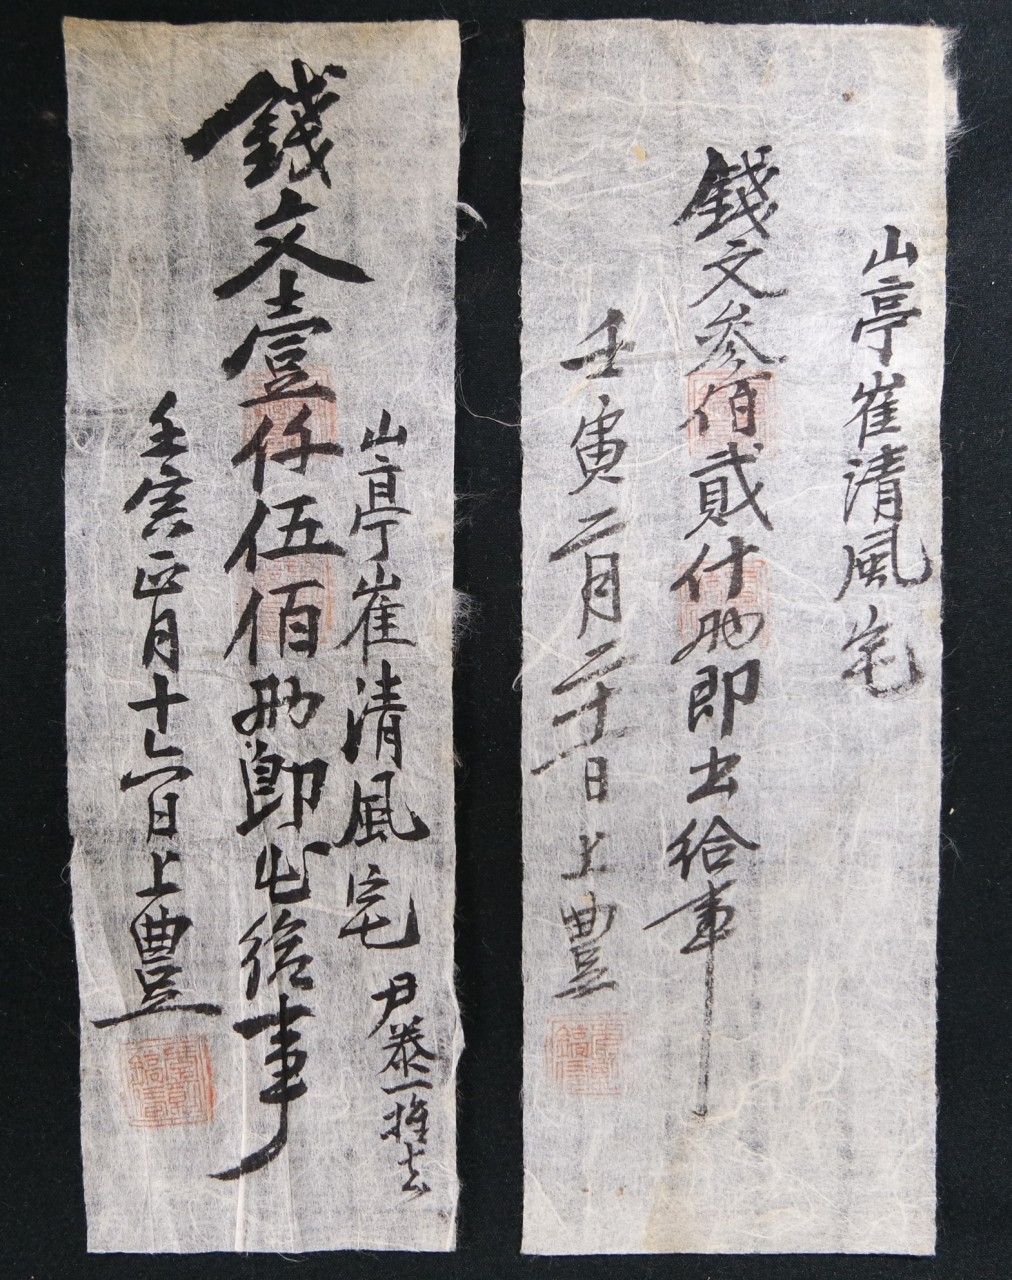 山亭崔清風宅
錢文參佰貳什兩即出給事
壬寅二月二十日上豊
山亭崔清風宅 尹泰一推去
錢文壹仟伍佰兩即出給事
壬寅正月十六日上豊